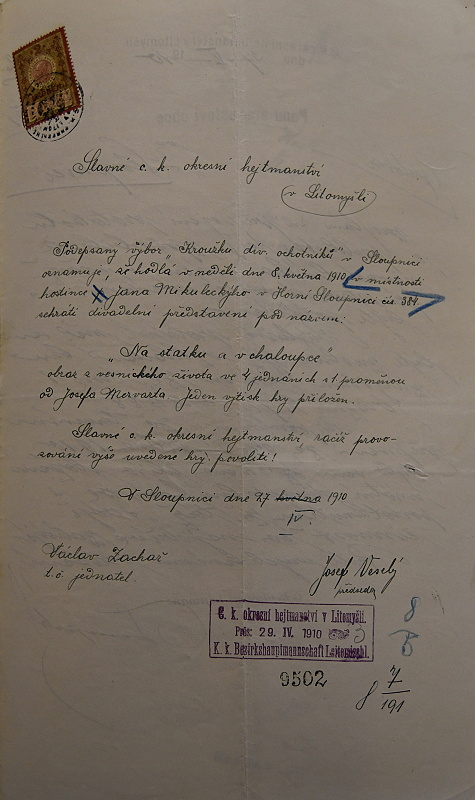 Slavné c. k. okresní hejtmanství
v Litomyšli
Podepsaný výbor „Kroužku div. ochotníků" v Sloupnici
oznamuje, že hodlá v neděli dne 8. května 1910 v místnosti
hostince Jana Mikuleckýho v Horní Sloupnici čís. 384.
sehráti divadelní představení pod názvem:
„Na statku a v chaloupce"
obraz z vesnického života ve 4 jednáních s 1 proměnou
od Josefa Mervarta. Jeden výtisk hry přiložen.
Slavné c. k. okresní hejtmanství, račiž provo-
zování výše uvedené hry povoliti!
V Sloupnici dne 27 května 1910
IV.
Václav Zachař
t. č. jednatel.
Josef Veselý
předseda
C. k. okresní hejtmanství v Litomyšli.
Präs: 29. IV. 1910
K. k. Bezirkshauptmannschaft Leitomischl.
9502
8
8 7/191